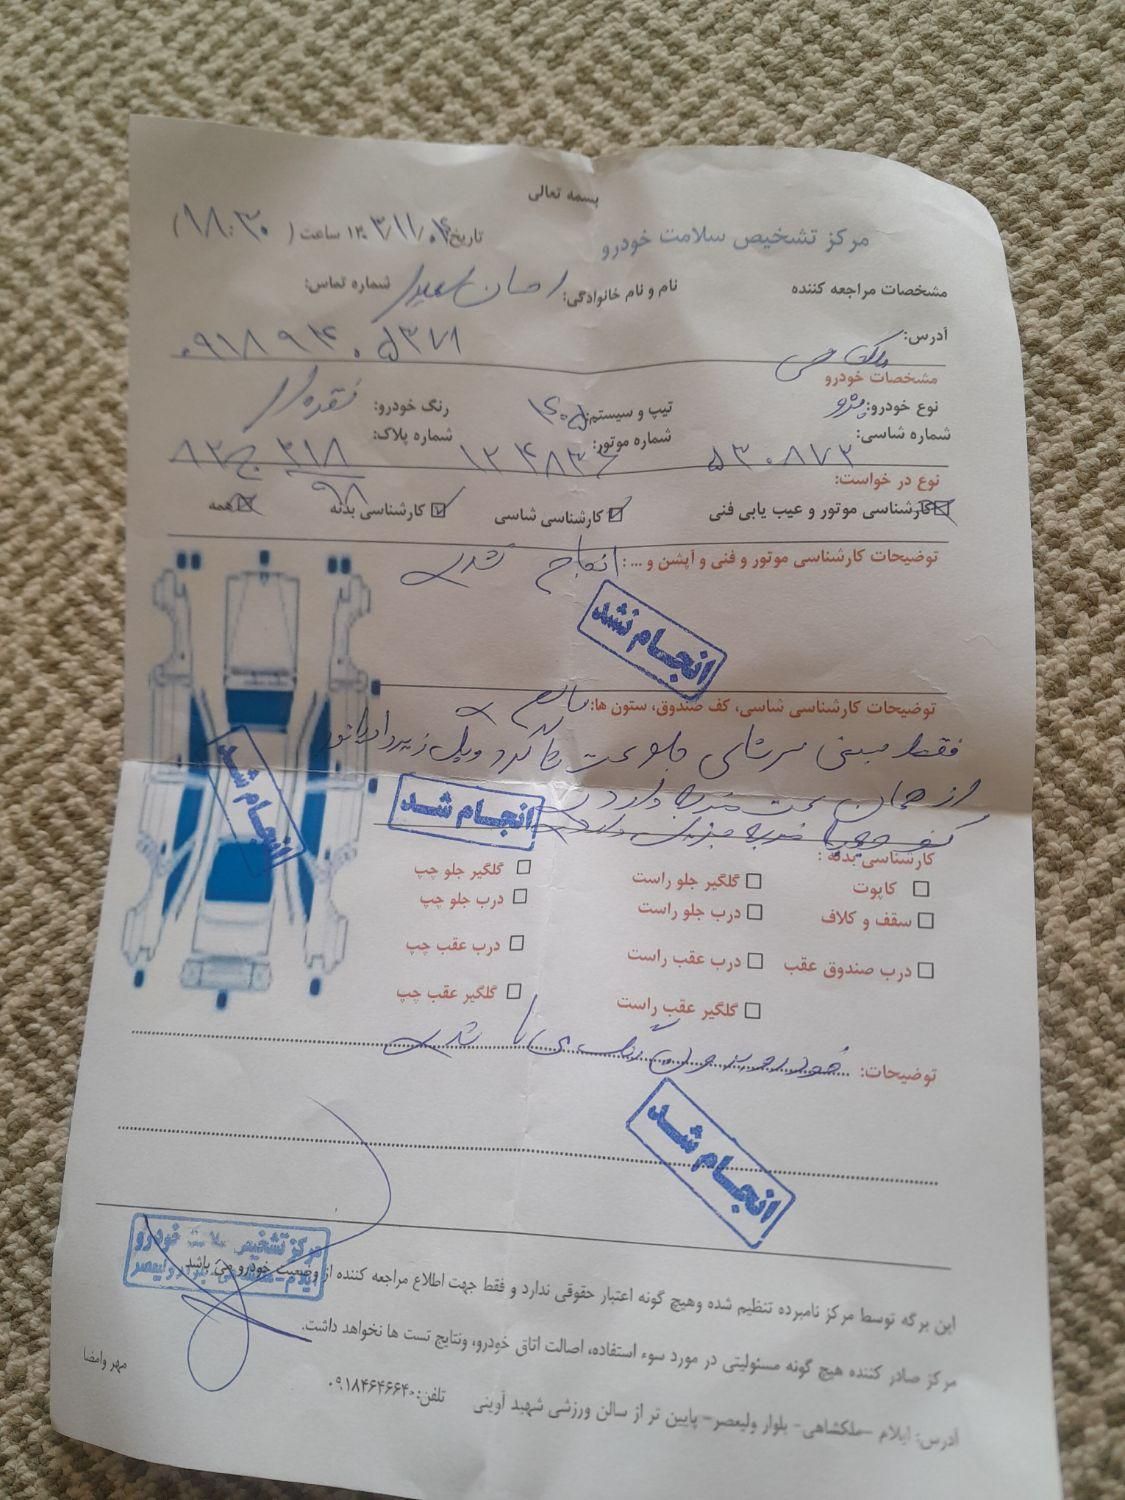 بسمه تعالی
مرکز تشخیص سلامت خودرو
تاریخ ۱۴۰۳/۱۱/۰۴ ساعت (۱۸:۳۰)
مشخصات مراجعه کننده
نام و نام خانوادگی: احسان
شماره تماس:
آدرس:
۰۹۱۸۹۱۴۰۵۳۷۱
مشخصات خودرو
نوع خودرو: پژو
تیپ و سیستم: ۴۰۵
رنگ خودرو: نقره‌ای
شماره شاسی: ۵۳۰۸۷۲
شماره موتور:
شماره پلاک: ۸۲ ج ۳۱۸ ۹۸
نوع در خواست:
کارشناسی موتور و عیب یابی فنی
کارشناسی شاسی
کارشناسی بدنه
همه
توضیحات کارشناسی موتور و فنی و آپشن و ... : انجام نشد
انجام نشد
توضیحات کارشناسی شاسی، کف صندوق، ستون ها: سالم
فقط سینی
از همان سمت ضربه دارد
انجام شد
انجام شد
کارشناسی بدنه :
کاپوت
گلگیر جلو راست
گلگیر جلو چپ
سقف و کلاف
درب جلو راست
درب جلو چپ
درب صندوق عقب
درب عقب راست
درب عقب چپ
گلگیر عقب راست
گلگیر عقب چپ
توضیحات: خودرو
انجام شد
مرکز تشخیص سلامت خودرو
این برگه توسط مرکز نامبرده تنظیم شده وهیچ گونه اعتبار حقوقی ندارد و فقط جهت اطلاع مراجعه کننده از وضعیت خودرو می باشد
مرکز صادر کننده هیچ گونه مسئولیتی در مورد سوء استفاده، اصالت اتاق خودرو، ونتایج تست ها نخواهد داشت.
مهر وامضا
آدرس: ایلام -ملکشاهی- بلوار ولیعصر- پایین تر از سالن ورزشی شهید آوینی تلفن: ۰۹۱۸۴۶۴۶۶۴۰